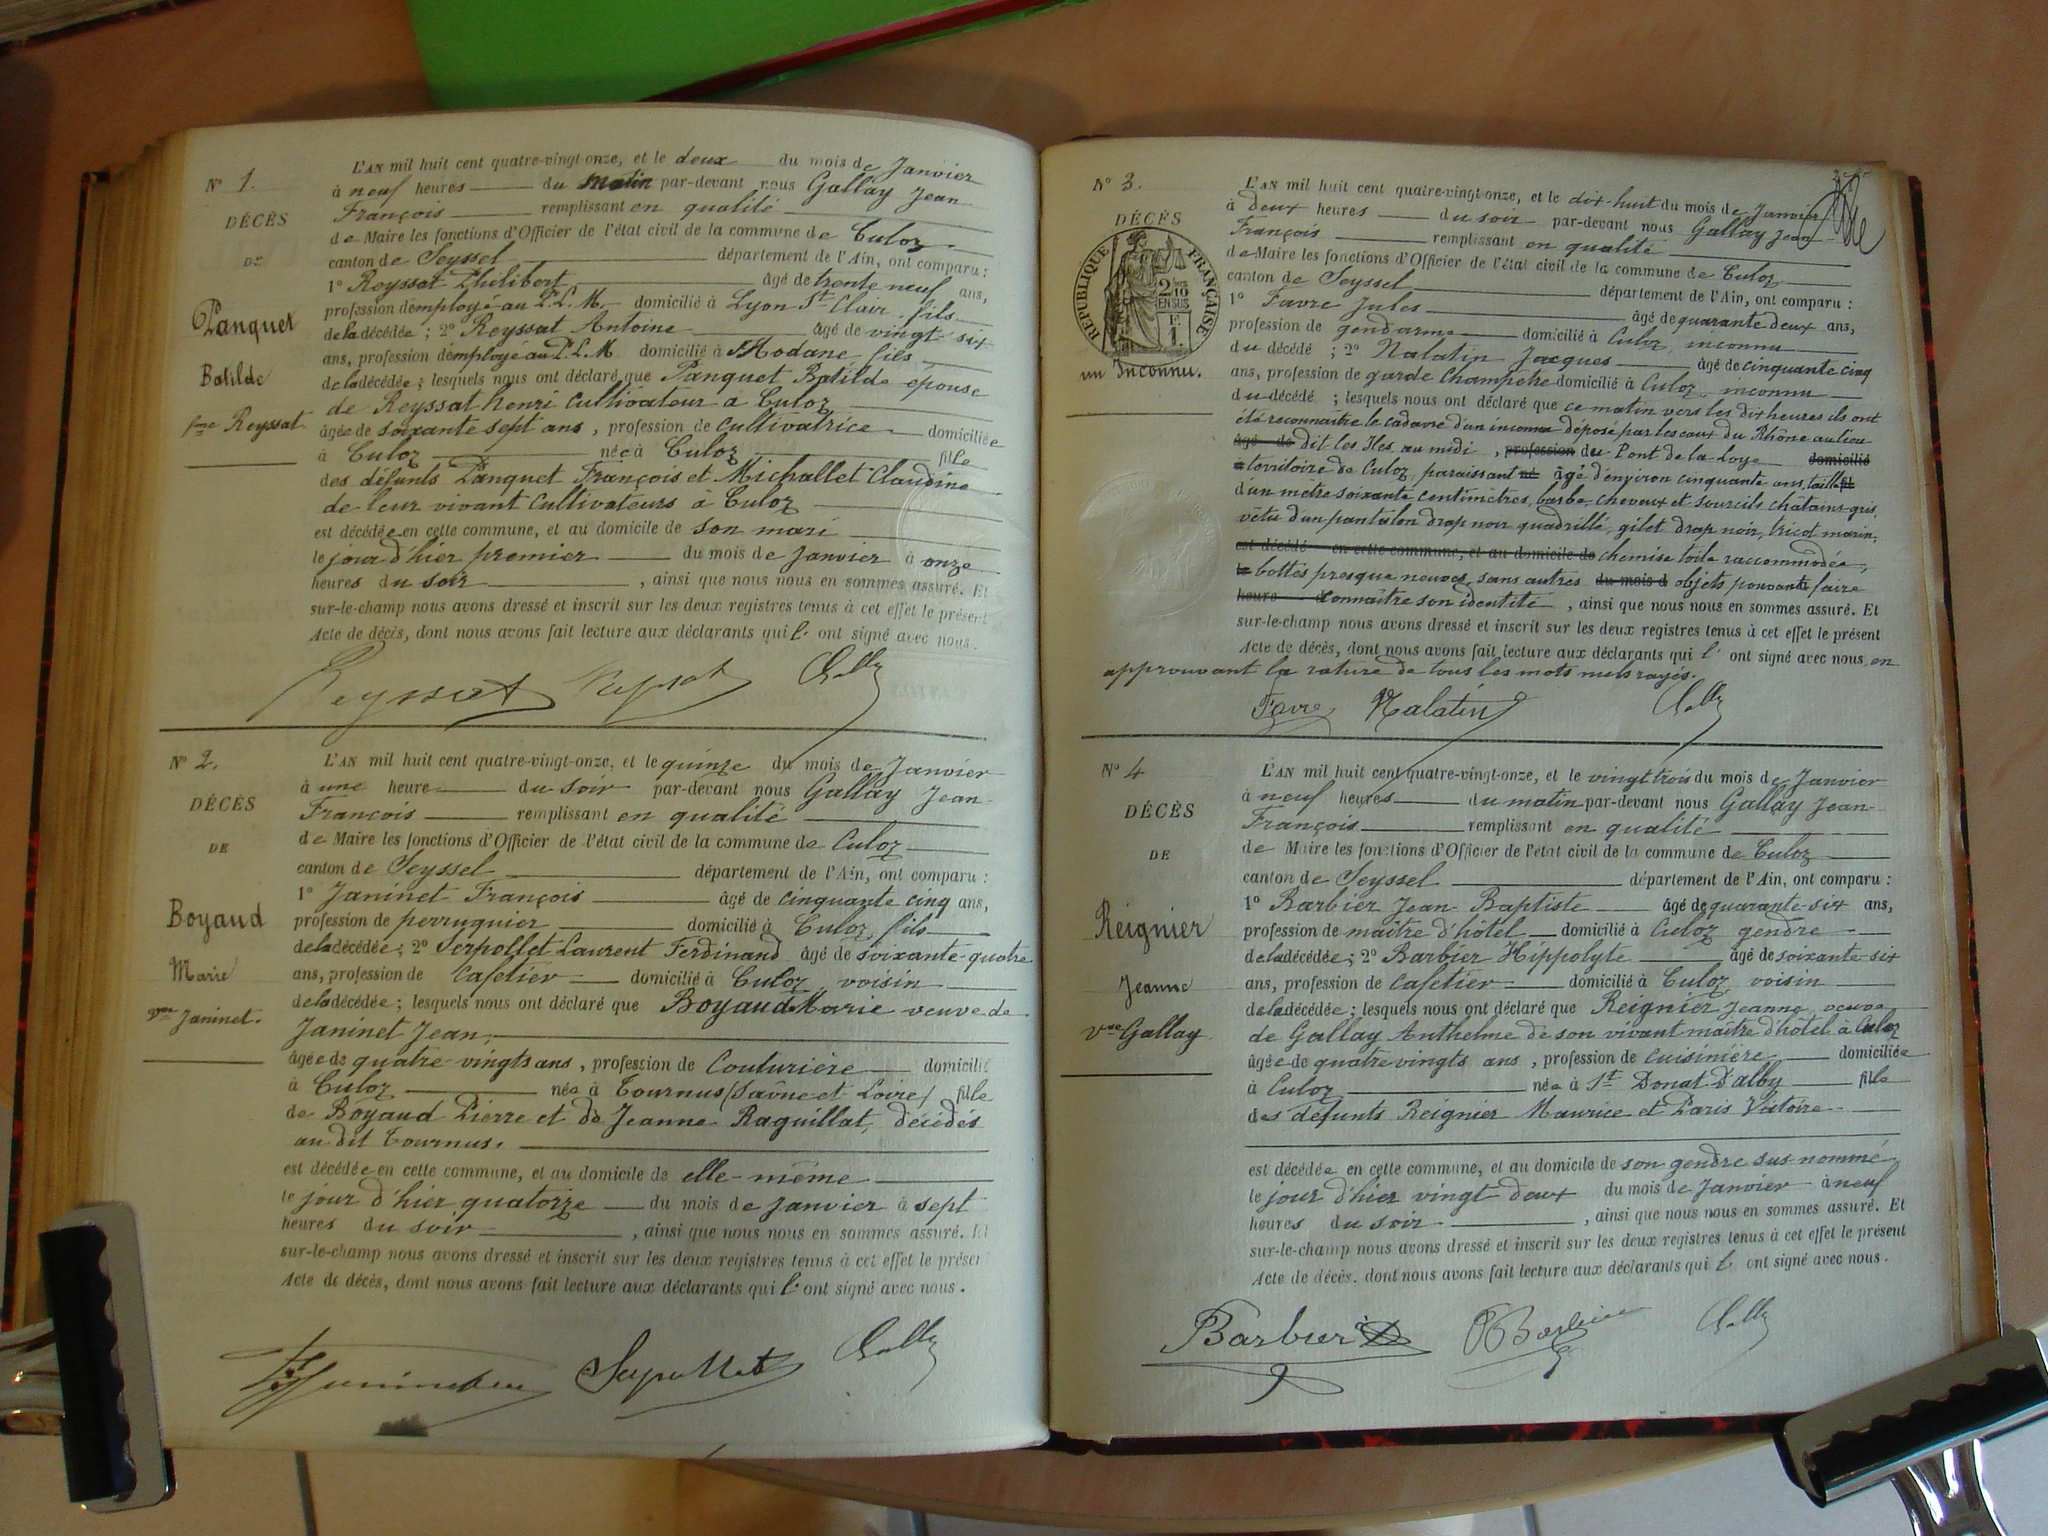 N° 1.
DÉCÈS
DE
Panquet
Batilde
fme Reyssat
L'AN mil huit cent quatre-vingt-onze, et le deux du mois de Janvier
à neuf heures du matin par-devant nous Gallay Jean
François remplissant en qualité
de Maire les fonctions d'Officier de l'état civil de la commune de Culoz
canton de Seyssel département de l'Ain, ont comparu :
1° Reyssat Philibert âgé de trente neuf ans,
profession d'employé au P. L. M. domicilié à Lyon St Clair, fils
de la décédée ; 2° Reyssat Antoine âgé de vingt-six
ans, profession d'employé au P. L. M domicilié à Modane fils
de la décédée ; lesquels nous ont déclaré que Panquet Batilde épouse
de Reyssat henri Cultivateur a Culoz
âgée de soixante sept ans, profession de Cultivatrice domiciliée
à Culoz née à Culoz fille
des défunts Panquet François et Michallet Claudine
de leur vivant Cultivateurs à Culoz
est décédée en cette commune, et au domicile de son mari
le jour d'hier premier du mois de Janvier à onze
heures du soir, ainsi que nous nous en sommes assuré. Et
sur-le-champ nous avons dressé et inscrit sur les deux registres tenus à cet effet le présent
Acte de décès, dont nous avons fait lecture aux déclarants qui l' ont signé avec nous.
Reyssat Reyssat Gally
N° 2.
DÉCÈS
DE
Boyaud
Marie
Vve Janinet.
L'AN mil huit cent quatre-vingt-onze, et le quinze du mois de Janvier
à une heure du soir par-devant nous Gallay Jean
François remplissant en qualité
de Maire les fonctions d'Officier de l'état civil de la commune de Culoz
canton de Seyssel département de l'Ain, ont comparu :
1° Janinet François âgé de cinquante cinq ans,
profession de perruquier domicilié à Culoz, fils
de la décédée ; 2° Serpollet Laurent Ferdinand âgé de soixante-quatre
ans, profession de Cafetier domicilié à Culoz, voisin
de la décédée ; lesquels nous ont déclaré que Boyaud Marie veuve de
Janinet Jean,
âgée de quatre-vingts ans, profession de Couturière domicilié
à Culoz née à Tournus (Saône et Loire) fille
de Boyaud Pierre et de Jeanne Raguillat, décédés
au dit Tournus.
est décédée en cette commune, et au domicile de elle-même
le jour d'hier quatorze du mois de Janvier à sept
heures du soir, ainsi que nous nous en sommes assuré. Et
sur-le-champ nous avons dressé et inscrit sur les deux registres tenus à cet effet le présen
Acte de décès, dont nous avons fait lecture aux déclarants qui l' ont signé avec nous.
Serpollet Gally
N° 3.
DÉCÈS
RÉPUBLIQUE FRANÇAISE
2/10 EN SUS
F. 1.
un Inconnu.
L'AN mil huit cent quatre-vingt-onze, et le dix-huit du mois de Janvier
à deux heures du soir par-devant nous Gallay Jean
François remplissant en qualité
de Maire les fonctions d'Officier de l'état civil de la commune de Culoz
canton de Seyssel département de l'Ain, ont comparu :
1° Favre Jules âgé de quarante deux ans,
profession de gendarme domicilié à Culoz, inconnu
du décédé ; 2° Nalatin Jacques âgé de cinquante cinq
ans, profession de garde Champetre domicilié à Culoz, inconnu
du décédé ; lesquels nous ont déclaré que ce matin vers les dix heures ils ont
été reconnaitre le cadavre d'un inconnu déposé par les eaux du Rhône au lieu
âgé de dit les Iles au midi, profession du Pont de la Loye domicilié
territoire de Culoz, paraissant né âgé d'environ cinquante ans, taille
d'un mètre soixante centimètres, barbe, cheveux et sourcils châtains-gris,
vêtu d'un pantalon drap noir quadrillé, gilet drap noir, tricot marin,
est décédé en cette commune, et au domicile de chemise toile raccommodée,
le bottes presque neuves, sans autres du mois d objets pouvant faire
heure connaître son identité, ainsi que nous nous en sommes assuré. Et
sur-le-champ nous avons dressé et inscrit sur les deux registres tenus à cet effet le présent
Acte de décès, dont nous avons fait lecture aux déclarants qui l' ont signé avec nous, en
approuvant la rature de tous les mots nuls rayés.
Favre Nalatin Gally
N° 4
DÉCÈS
DE
Reignier
Jeanne
Vve Gallay
L'AN mil huit cent quatre-vingt-onze, et le vingt trois du mois de Janvier
à neuf heures du matin par-devant nous Gallay Jean
François remplissant en qualité
de Maire les fonctions d'Officier de l'état civil de la commune de Culoz
canton de Seyssel département de l'Ain, ont comparu :
1° Barbier Jean-Baptiste âgé de quarante-six ans,
profession de maître d'hôtel domicilié à Culoz gendre
de la décédée ; 2° Barbier Hippolyte âgé de soixante-six
ans, profession de Cafetier domicilié à Culoz voisin
de la décédée ; lesquels nous ont déclaré que Reignier Jeanne veuve
de Gallay Anthelme de son vivant maître d'hôtel à Culoz
âgée de quatre vingts ans, profession de Cuisinière domiciliée
à Culoz née à St Donat d'alby fille
des défunts Reignier Maurice et Paris Victoire
est décédée en cette commune, et au domicile de son gendre sus-nommé
le jour d'hier vingt deux du mois de Janvier à neuf
heures du soir, ainsi que nous nous en sommes assuré. Et
sur-le-champ nous avons dressé et inscrit sur les deux registres tenus à cet effet le présent
Acte de décès. dont nous avons fait lecture aux déclarants qui l' ont signé avec nous.
Barbier H Barbier Gally